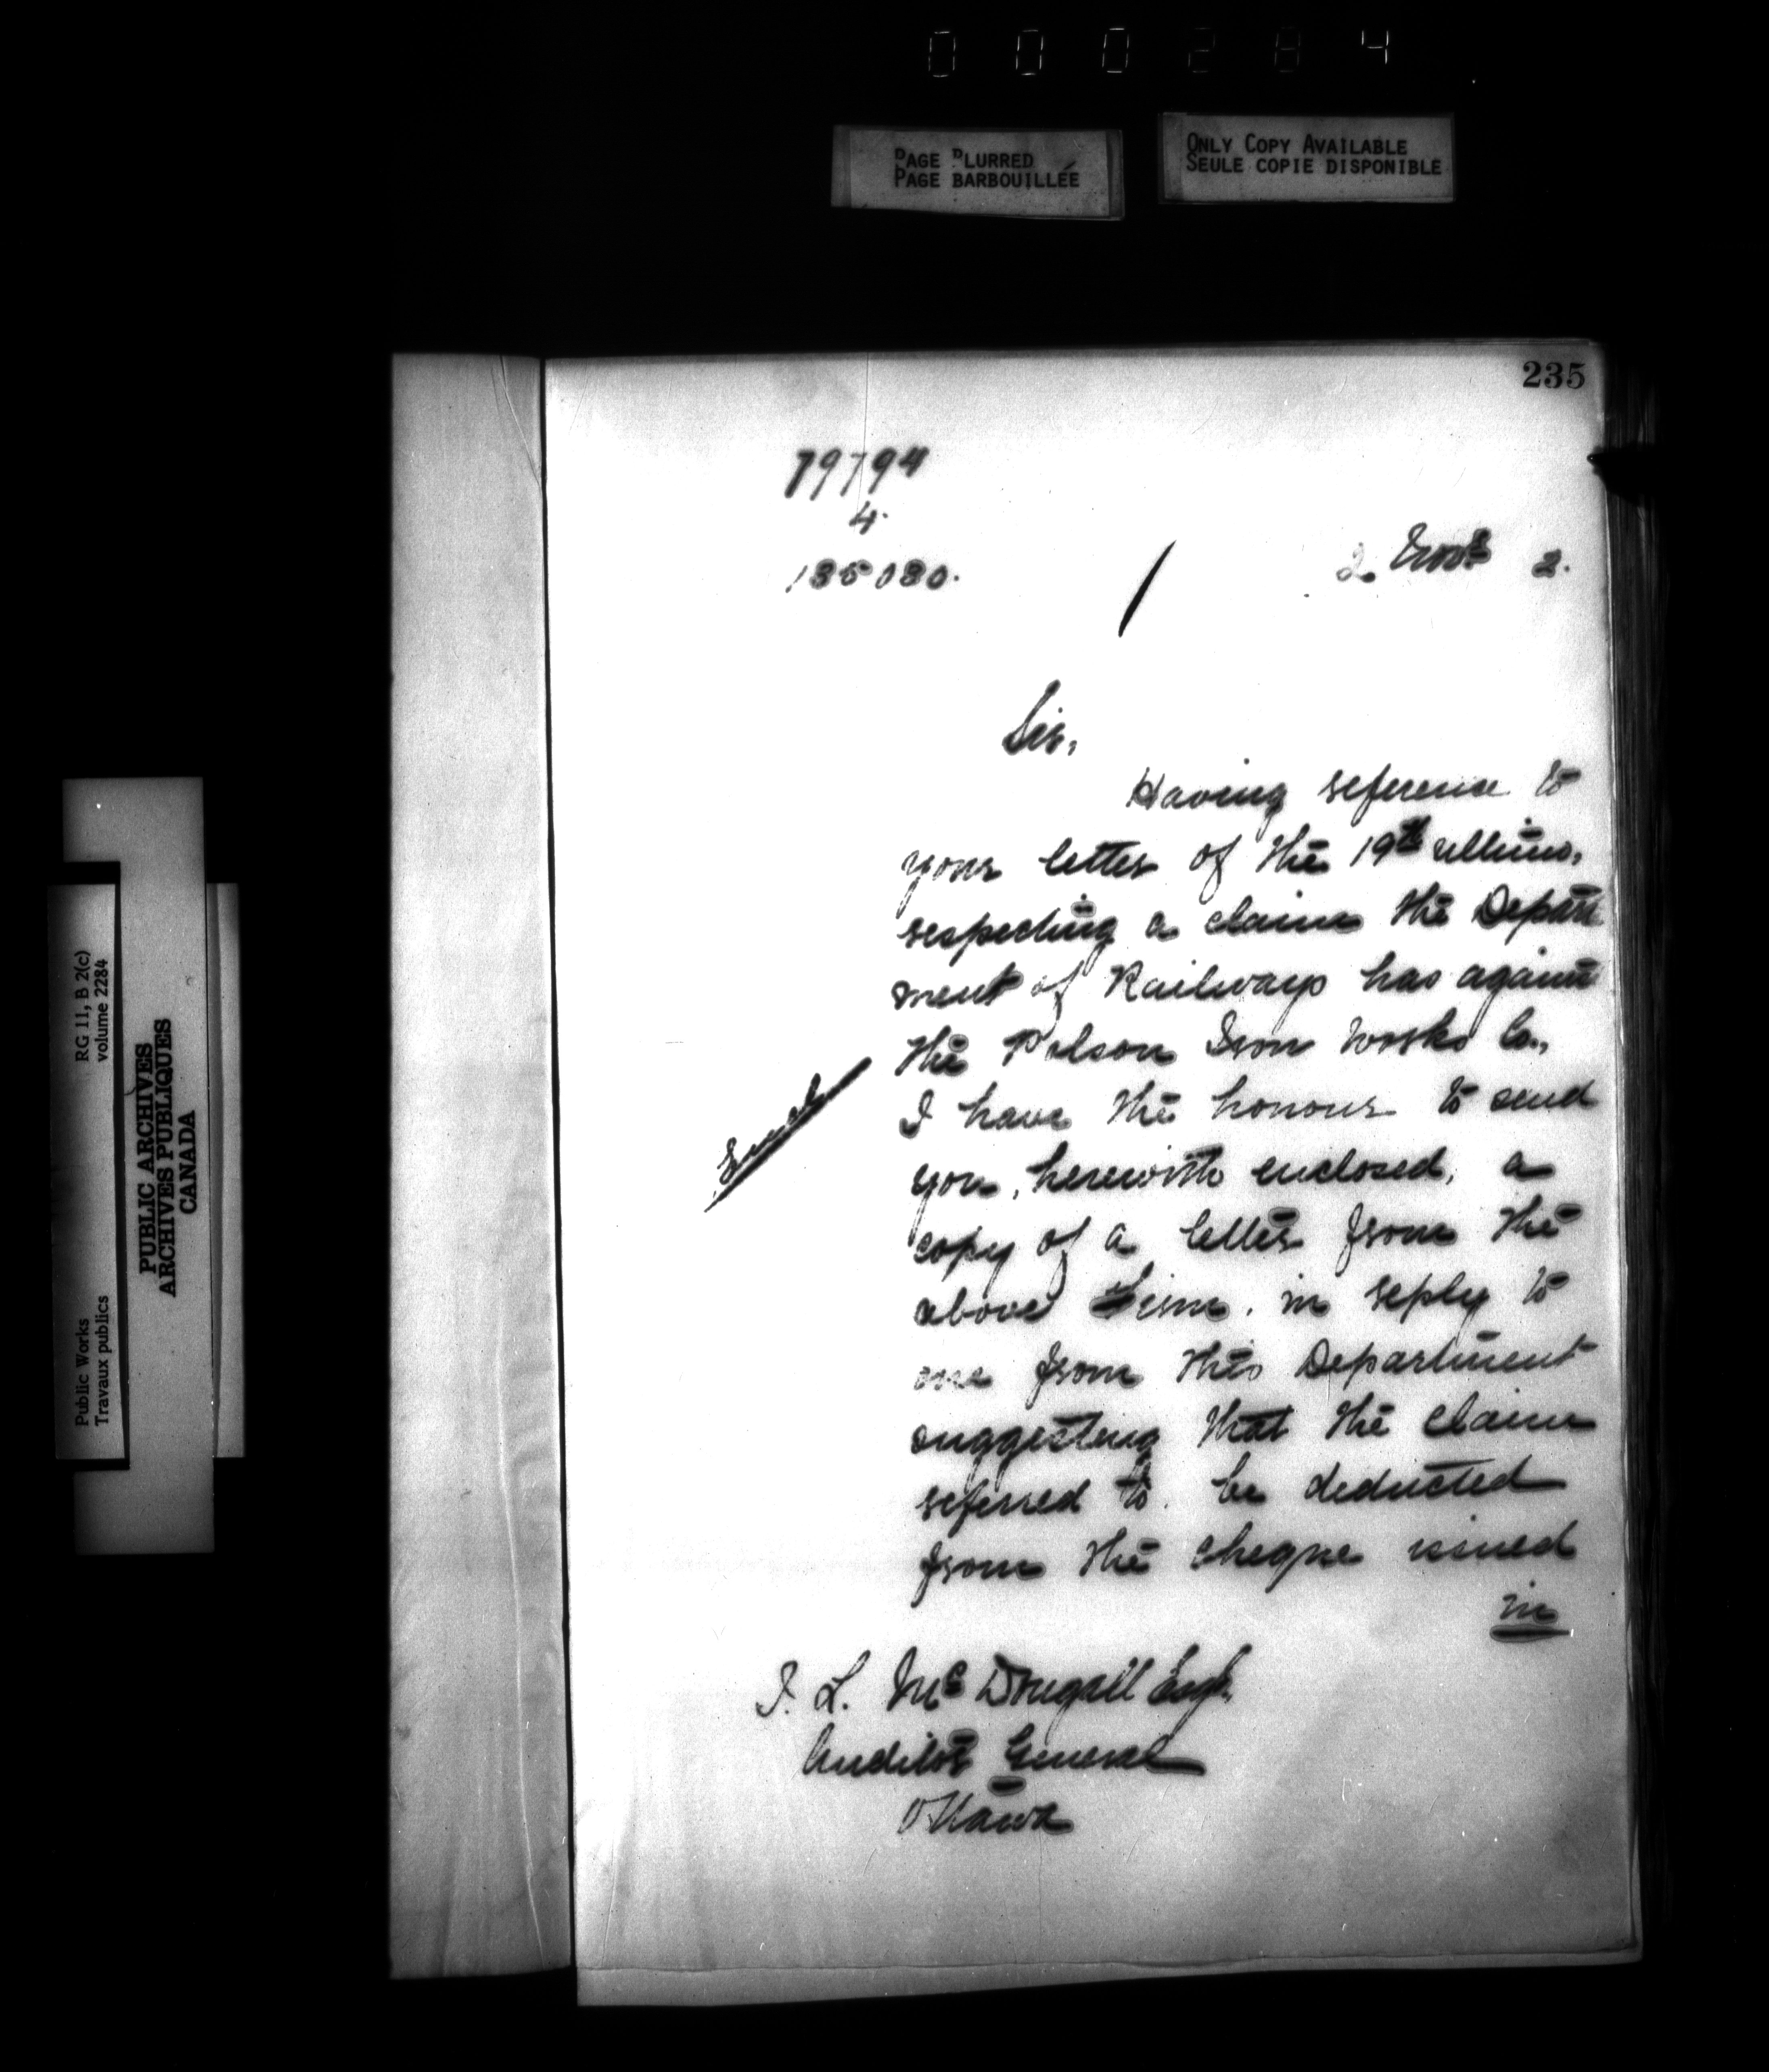 000284
PAGE BLURRED
PAGE BARBOUILLÉE
ONLY COPY AVAILABLE
SEULE COPIE DISPONIBLE
235
79794
4.
135030.
2 Novr 2.
Sir,
Having reference to
your letter of the 19th ultimo,
respecting a claim the Depart
ment of Railways has against
the Polson Iron Works Co.,
I have the honour to send
you, herewith enclosed, a
copy of a letter from the
above Firm, in reply to
one from this Department
suggesting that the claim
referred to, be deducted
from the cheque issued
in
J. L. McDougall Esqr.
Auditor General
Ottawa
RG 11, B 2(c)
volume 2284
Public Works
Travaux publics
PUBLIC ARCHIVES
ARCHIVES PUBLIQUES
CANADA